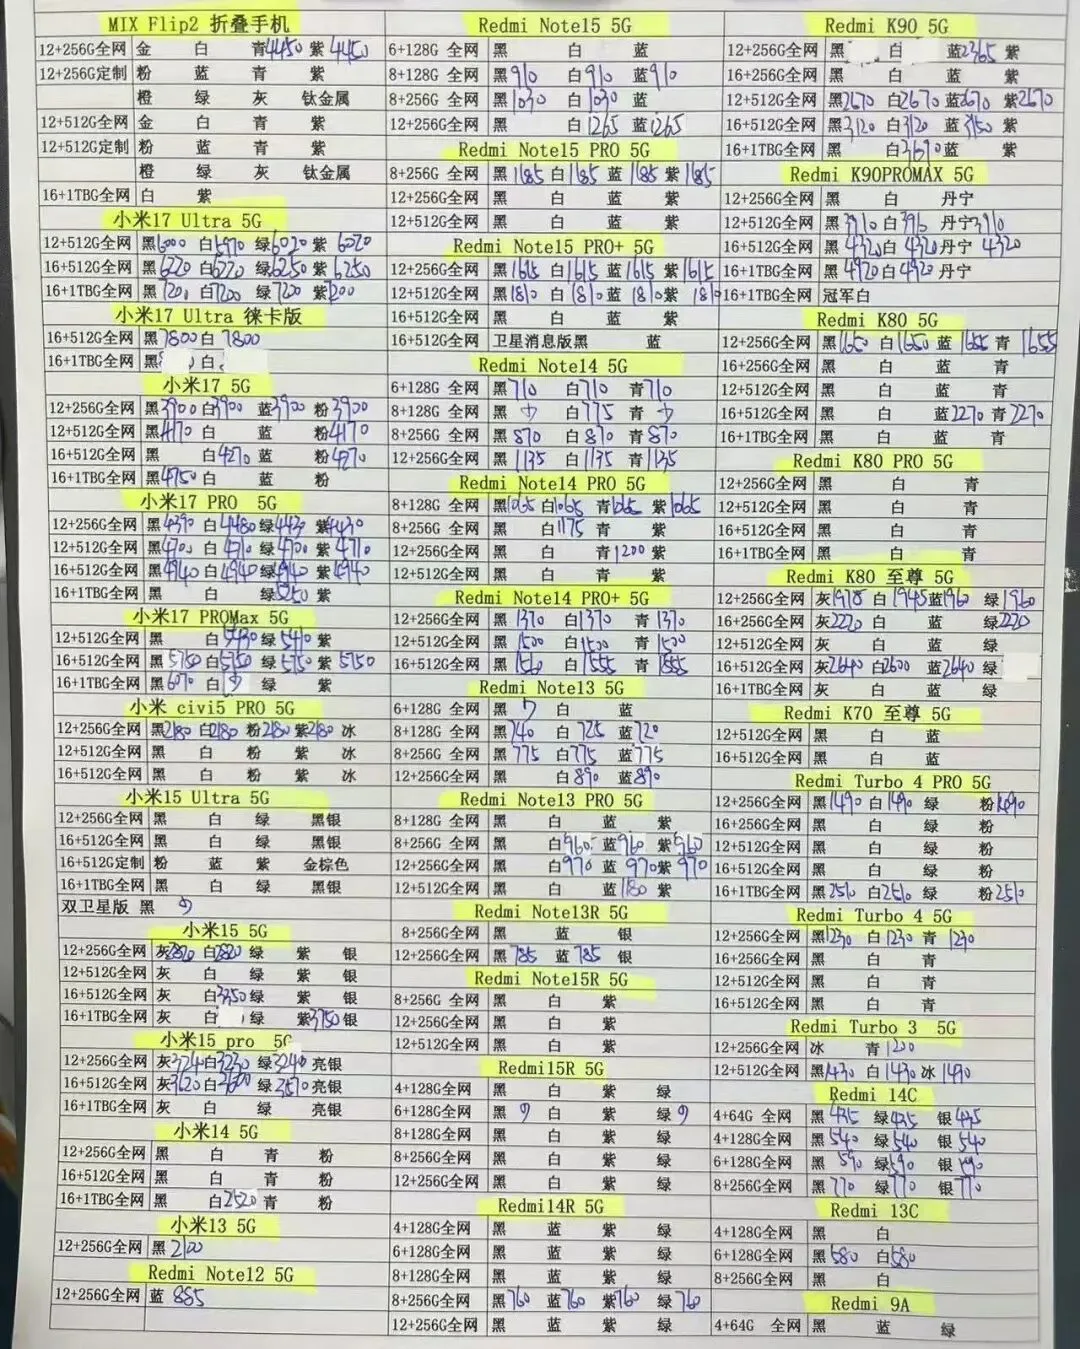 MIX Flip2 折叠手机
12+256G全网 金 白 青4450 紫4450
12+256G定制 粉 蓝 青 紫
橙 绿 灰 钛金属
12+512G全网 金 白 青 紫
12+512G定制 粉 蓝 青 紫
橙 绿 灰 钛金属
16+1TBG全网 白 紫
小米17 Ultra 5G
12+512G全网 黑6000 白5970 绿6020 紫6020
16+512G全网 黑6220 白6220 绿6250 紫6250
16+1TBG全网 黑7200 白7200 绿7200 紫7200
小米17 Ultra 徕卡版
16+512G全网 黑7800 白7800
16+1TBG全网 黑 白
小米17 5G
12+256G全网 黑3900 白3900 蓝3900 粉3900
12+512G全网 黑4170 白 蓝 粉4170
16+512G全网 黑 白4270 蓝 粉4270
16+1TBG全网 黑4750 白 蓝 粉
小米17 PRO 5G
12+256G全网 黑4390 白4480 绿4430 紫4430
12+512G全网 黑4700 白4710 绿4700 紫4710
16+512G全网 黑4940 白4940 绿4940 紫4940
16+1TBG全网 黑 白 绿5250 紫
小米17 PROMax 5G
12+512G全网 黑 白5430 绿5410 紫
16+512G全网 黑5750 白5750 绿5750 紫5750
16+1TBG全网 黑6070 白 绿 紫
小米 civi5 PRO 5G
12+256G全网 黑2180 白2180 粉2180 紫2180 冰
12+512G全网 黑 白 粉 紫 冰
16+512G全网 黑 白 粉 紫 冰
小米15 Ultra 5G
12+256G全网 黑 白 绿 黑银
16+512G全网 黑 白 绿 黑银
16+512G定制 粉 蓝 紫 金棕色
16+1TBG全网 黑 白 绿 黑银
双卫星版 黑
小米15 5G
12+256G全网 灰2820 白2820 绿 紫 银
12+512G全网 灰 白 绿 紫 银
16+512G全网 灰 白3350 绿 紫 银
16+1TBG全网 灰 白 绿 紫3750 银
小米15 pro 5G
12+256G全网 灰324 白3230 绿3240 亮银
16+512G全网 灰3620 白3600 绿3570 亮银
16+1TBG全网 灰 白 绿 亮银
小米14 5G
12+256G全网 黑 白 青 粉
16+512G全网 黑 白 青 粉
16+1TBG全网 黑 白2520 青 粉
小米13 5G
12+256G全网 黑2100
Redmi Note12 5G
12+256G全网 蓝 885
Redmi Note15 5G
6+128G 全网 黑 白 蓝
8+128G 全网 黑910 白910 蓝910
8+256G 全网 黑1030 白1030 蓝
12+256G全网 黑 白1265 蓝1265
Redmi Note15 PRO 5G
8+256G 全网 黑1185 白1185 蓝1185 紫1185
12+256G全网 黑 白 蓝 紫
12+512G全网 黑 白 蓝 紫
Redmi Note15 PRO+ 5G
12+256G全网 黑1615 白1615 蓝1615 紫1615
12+512G全网 黑1810 白1810 蓝1810 紫1810
16+512G全网 黑 白 蓝 紫
16+512G全网 卫星消息版黑 蓝
Redmi Note14 5G
6+128G 全网 黑710 白710 青710
8+128G 全网 黑 白775 青
8+256G 全网 黑870 白870 青870
12+256G全网 黑1135 白1135 青1135
Redmi Note14 PRO 5G
8+128G 全网 黑1065 白1065 青1065 紫1065
8+256G 全网 黑 白1175 青 紫
12+256G全网 黑 白 青1200 紫
12+512G全网 黑 白 青 紫
Redmi Note14 PRO+ 5G
12+256G全网 黑1370 白1370 青1370
12+512G全网 黑1500 白1500 青1500
16+512G全网 黑1560 白1555 青1555
Redmi Note13 5G
6+128G 全网 黑 白 蓝
8+128G 全网 黑740 白725 蓝720
8+256G 全网 黑775 白775 蓝775
12+256G全网 黑 白890 蓝890
Redmi Note13 PRO 5G
8+128G 全网 黑 白 蓝 紫
8+256G 全网 黑 白960 蓝960 紫960
12+256G全网 黑 白970 蓝970 紫970
12+512G全网 黑 白 蓝1180 紫
Redmi Note13R 5G
8+256G全网 黑 蓝 银
12+256G全网 黑785 蓝785 银
Redmi Note15R 5G
8+256G 全网 黑 白 紫
12+256G全网 黑 白 紫
12+512G全网 黑 白 紫
Redmi15R 5G
4+128G全网 黑 白 紫 绿
6+128G全网 黑 白 紫 绿
8+128G全网 黑 白 紫 绿
8+256G全网 黑 白 紫 绿
12+256G全网 黑 白 紫 绿
Redmi14R 5G
4+128G全网 黑 蓝 紫 绿
6+128G全网 黑 蓝 紫 绿
8+128G全网 黑 蓝 紫 绿
8+256G全网 黑760 蓝760 紫760 绿760
12+256G全网 黑 蓝 紫 绿
Redmi K90 5G
12+256G全网 黑 白 蓝2365 紫
16+256G全网 黑 白 蓝 紫
12+512G全网 黑2670 白2670 蓝2670 紫2670
16+512G全网 黑3120 白3120 蓝3150 紫
16+1TBG全网 黑 白3690 蓝 紫
Redmi K90PROMAX 5G
12+256G全网 黑 白 丹宁
12+512G全网 黑3910 白3910 丹宁3910
16+512G全网 黑4320 白4320 丹宁4320
16+1TBG全网 黑4920 白4920 丹宁
16+1TBG全网 冠军白
Redmi K80 5G
12+256G全网 黑1650 白1650 蓝1655 青1655
16+256G全网 黑 白 蓝 青
12+512G全网 黑 白 蓝 青
16+512G全网 黑 白 蓝2270 青2270
16+1TBG全网 黑 白 蓝 青
Redmi K80 PRO 5G
12+256G全网 黑 白 青
12+512G全网 黑 白 青
16+512G全网 黑 白 青
16+1TBG全网 黑 白 青
Redmi K80 至尊 5G
12+256G全网 灰1978 白1945 蓝1960 绿1960
16+256G全网 灰2220 白 蓝 绿2220
12+512G全网 灰 白 蓝 绿
16+512G全网 灰2640 白2600 蓝2640 绿
16+1TBG全网 灰 白 蓝 绿
Redmi K70 至尊 5G
12+512G全网 黑 白 蓝
16+512G全网 黑 白 蓝
Redmi Turbo 4 PRO 5G
12+256G全网 黑1490 白1490 绿 粉1490
16+256G全网 黑 白 绿 粉
12+512G全网 黑 白 绿 粉
16+512G全网 黑 白 绿 粉
16+1TBG全网 黑2510 白2510 绿 粉2510
Redmi Turbo 4 5G
12+256G全网 黑1230 白1230 青1230
16+256G全网 黑 白 青
12+512G全网 黑 白 青
16+512G全网 黑 白 青
Redmi Turbo 3 5G
12+256G全网 冰 青1200
12+512G全网 黑1430 白1430 冰1490
Redmi 14C
4+64G 全网 黑435 绿435 银435
4+128G全网 黑540 绿540 银540
6+128G全网 黑590 绿590 银590
8+256G全网 黑770 绿770 银770
Redmi 13C
4+128G全网 黑 白
6+128G全网 黑580 白580
8+256G全网 黑 白
Redmi 9A
4+64G 全网 黑 蓝 绿